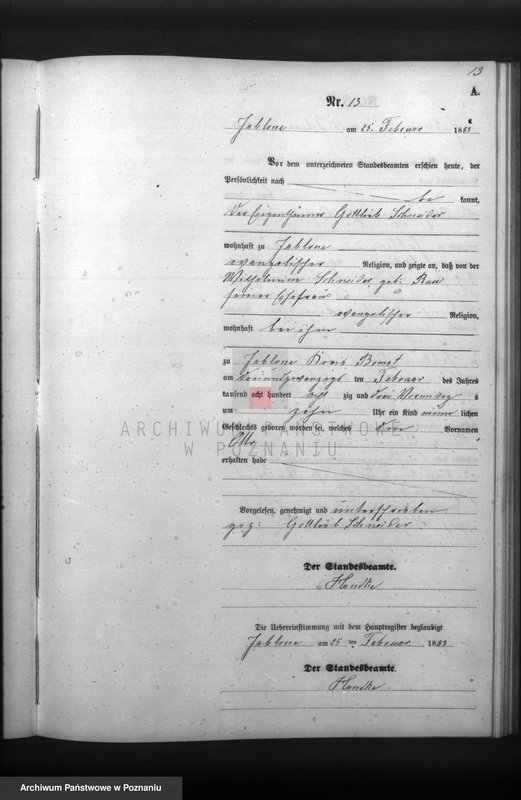 13
A.
Nr. 13
Jablone am 25. Februar 1883
Vor dem unterzeichneten Standesbeamten erschien heute, der
Persönlichkeit nach
be kannt,
der Eigenthümer Gottlieb Schneider
wohnhaft zu Jablone
evangelischer Religion, und zeigte an, daß von der
Wilhelmine Schneider geb: Rau
seiner Ehefrau
evangelischer Religion,
wohnhaft bei ihm
zu Jablone Kreis Bomst
am dreiundzwanzigsten Februar des Jahres
tausend acht hundert acht zig und drei Vormittag s
um zehn Uhr ein Kind männ lichen
Geschlechts geboren worden sei, welches den Vornamen
Otto
erhalten habe
ARCHIWUM PAŃSTWOWE
W POZNANIU
Vorgelesen, genehmigt und unterschrieben
gez: Gottlieb Schneider
Der Standesbeamte.
Handke
Die Uebereinstimmung mit dem Hauptregister beglaubigt
Jablone am 25 ten Februar 1883
Der Standesbeamte.
Handke
Archiwum Państwowe w Poznaniu